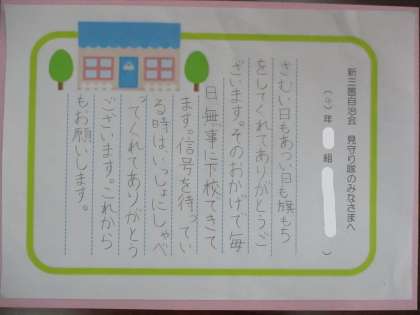 新三箇自治会 見守り隊のみなさまへ
( 6 )年( )組( )
さむい日もあつい日も旗もち
をしてくれてありがとうご
ざいます。そのおかげで毎
日無事に下校できて
ます。信号を待ってい
る時はいっしょにしゃべ
ってくれてありがとう
ございます。これから
もお願いします。